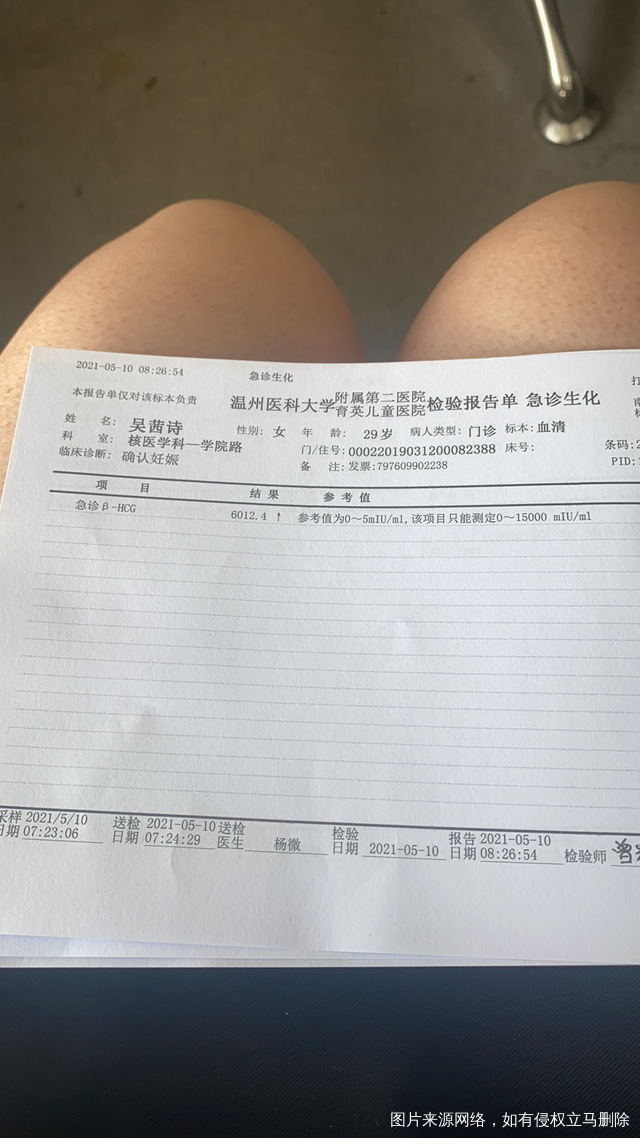 2021-05-10 08:26:54
急诊生化
本报告单仅对该标本负责
温州医科大学附属第二医院育英儿童医院检验报告单 急诊生化
姓 名: 吴茜诗 性别: 女 年 龄: 29岁 病人类型: 门诊 标本: 血清
科 室: 核医学科—学院路 门/住号: 00022019031200082388 床号: 条码:2
临床诊断: 确认妊娠 备 注: 发票:797609902238 PID:
项 目 结 果 参 考 值
急诊β-HCG 6012.4 ↑ 参考值为0~5mIU/ml,该项目只能测定0~15000 mIU/ml
采样日期 2021/5/10 07:23:06 送检日期 2021-05-10 07:24:29 送检医生 杨微 检验日期 2021-05-10 报告日期 2021-05-10 08:26:54 检验师
图片来源网络，如有侵权立马删除